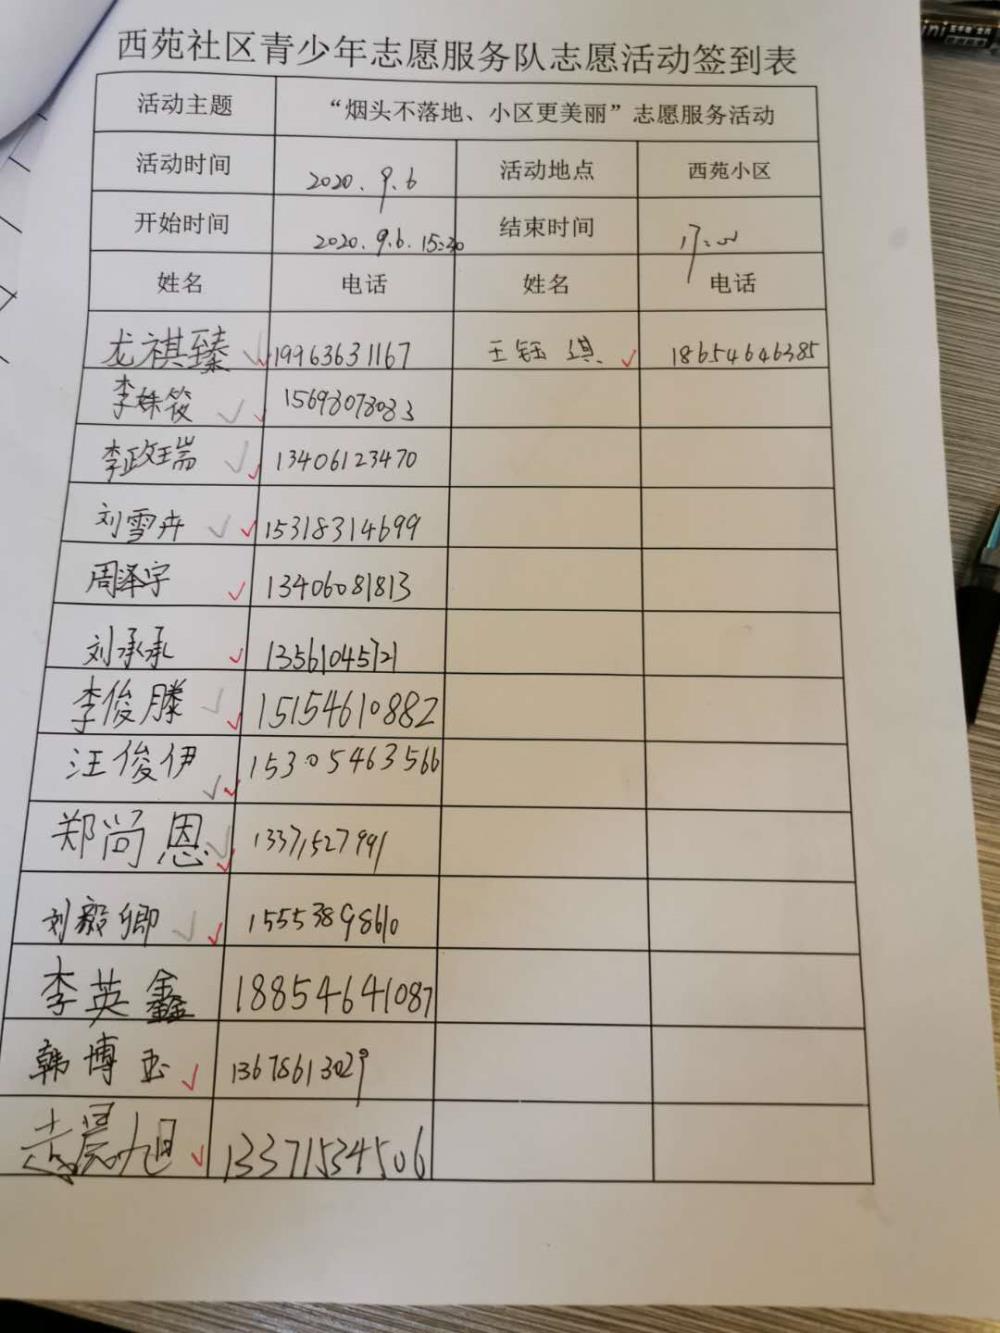 西苑社区青少年志愿服务队志愿活动签到表
活动主题 “烟头不落地、小区更美丽”志愿服务活动
活动时间 2020.9.6 活动地点 西苑小区
开始时间 2020.9.6.15:30 结束时间 17:00
姓名 电话 姓名 电话
龙祺臻 19963631167 王钰琪 18654646385
李姝筱 15698078083
李政瑞 13406123470
刘雪卉 15318314699
周泽宇 13406081813
刘承承 13561045721
李俊滕 15154610882
汪俊伊 15305463566
郑尚恩 13371527991
刘毅卿 15553898610
李英鑫 18854641087
韩博 13678613029
晨旭 13371534506